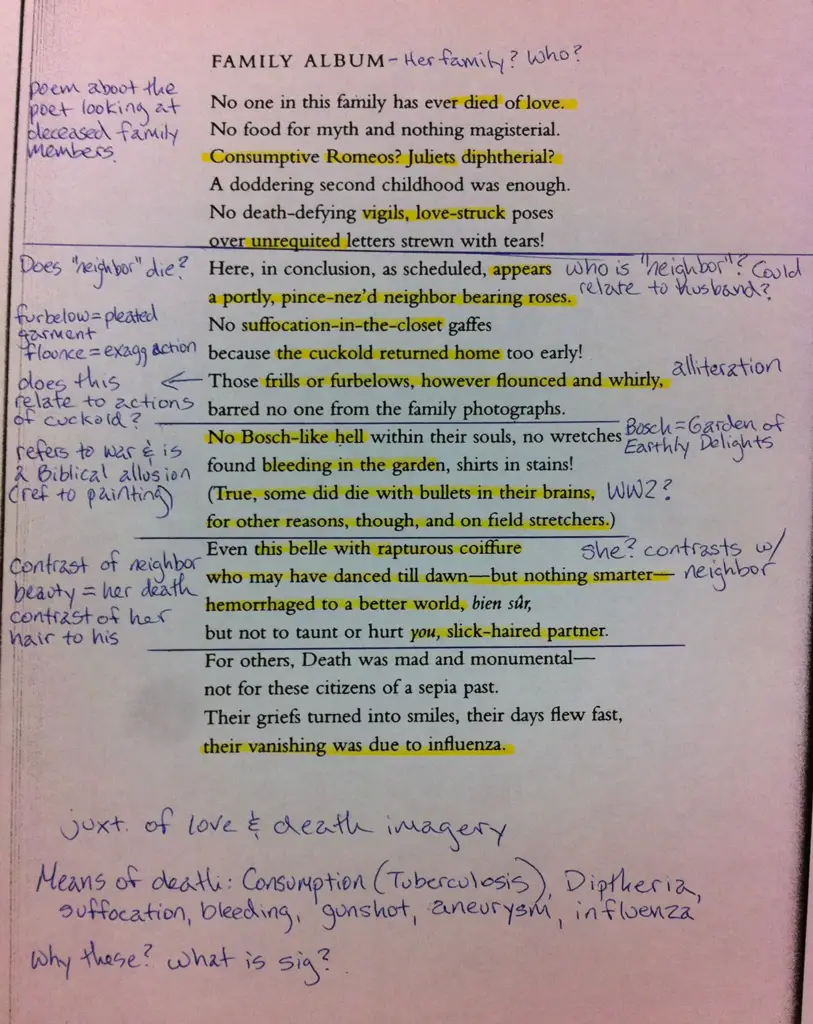 FAMILY ALBUM - Her family? Who?
poem about the
poet looking at
deceased family
members.
No one in this family has ever died of love.
No food for myth and nothing magisterial.
Consumptive Romeos? Juliets diphtherial?
A doddering second childhood was enough.
No death-defying vigils, love-struck poses
over unrequited letters strewn with tears!
Does "neighbor" die?
Here, in conclusion, as scheduled, appears
who is "neighbor"? Could
relate to husband?
a portly, pince-nez'd neighbor bearing roses.
furbelow = pleated
garment
flounce = exagg action
No suffocation-in-the-closet gaffes
because the cuckold returned home too early!
does this ←
relate to actions
of cuckold?
Those frills or furbelows, however flounced and whirly,
alliteration
barred no one from the family photographs.
refers to war & is
a Biblical allusion
(ref to painting)
No Bosch-like hell within their souls, no wretches
Bosch = Garden of
Earthly Delights
found bleeding in the garden, shirts in stains!
(True, some did die with bullets in their brains, WW2?
for other reasons, though, and on field stretchers.)
Contrast of neighbor
beauty = her death
contrast of her
hair to his
Even this belle with rapturous coiffure
she? contrasts w/
neighbor
who may have danced till dawn—but nothing smarter—
hemorrhaged to a better world, bien sûr,
but not to taunt or hurt you, slick-haired partner.
For others, Death was mad and monumental—
not for these citizens of a sepia past.
Their griefs turned into smiles, their days flew fast,
their vanishing was due to influenza.
juxt. of love & death imagery
Means of death: Consumption (Tuberculosis), Diptheria,
suffocation, bleeding, gunshot, aneurysm, influenza
Why these? What is sig?